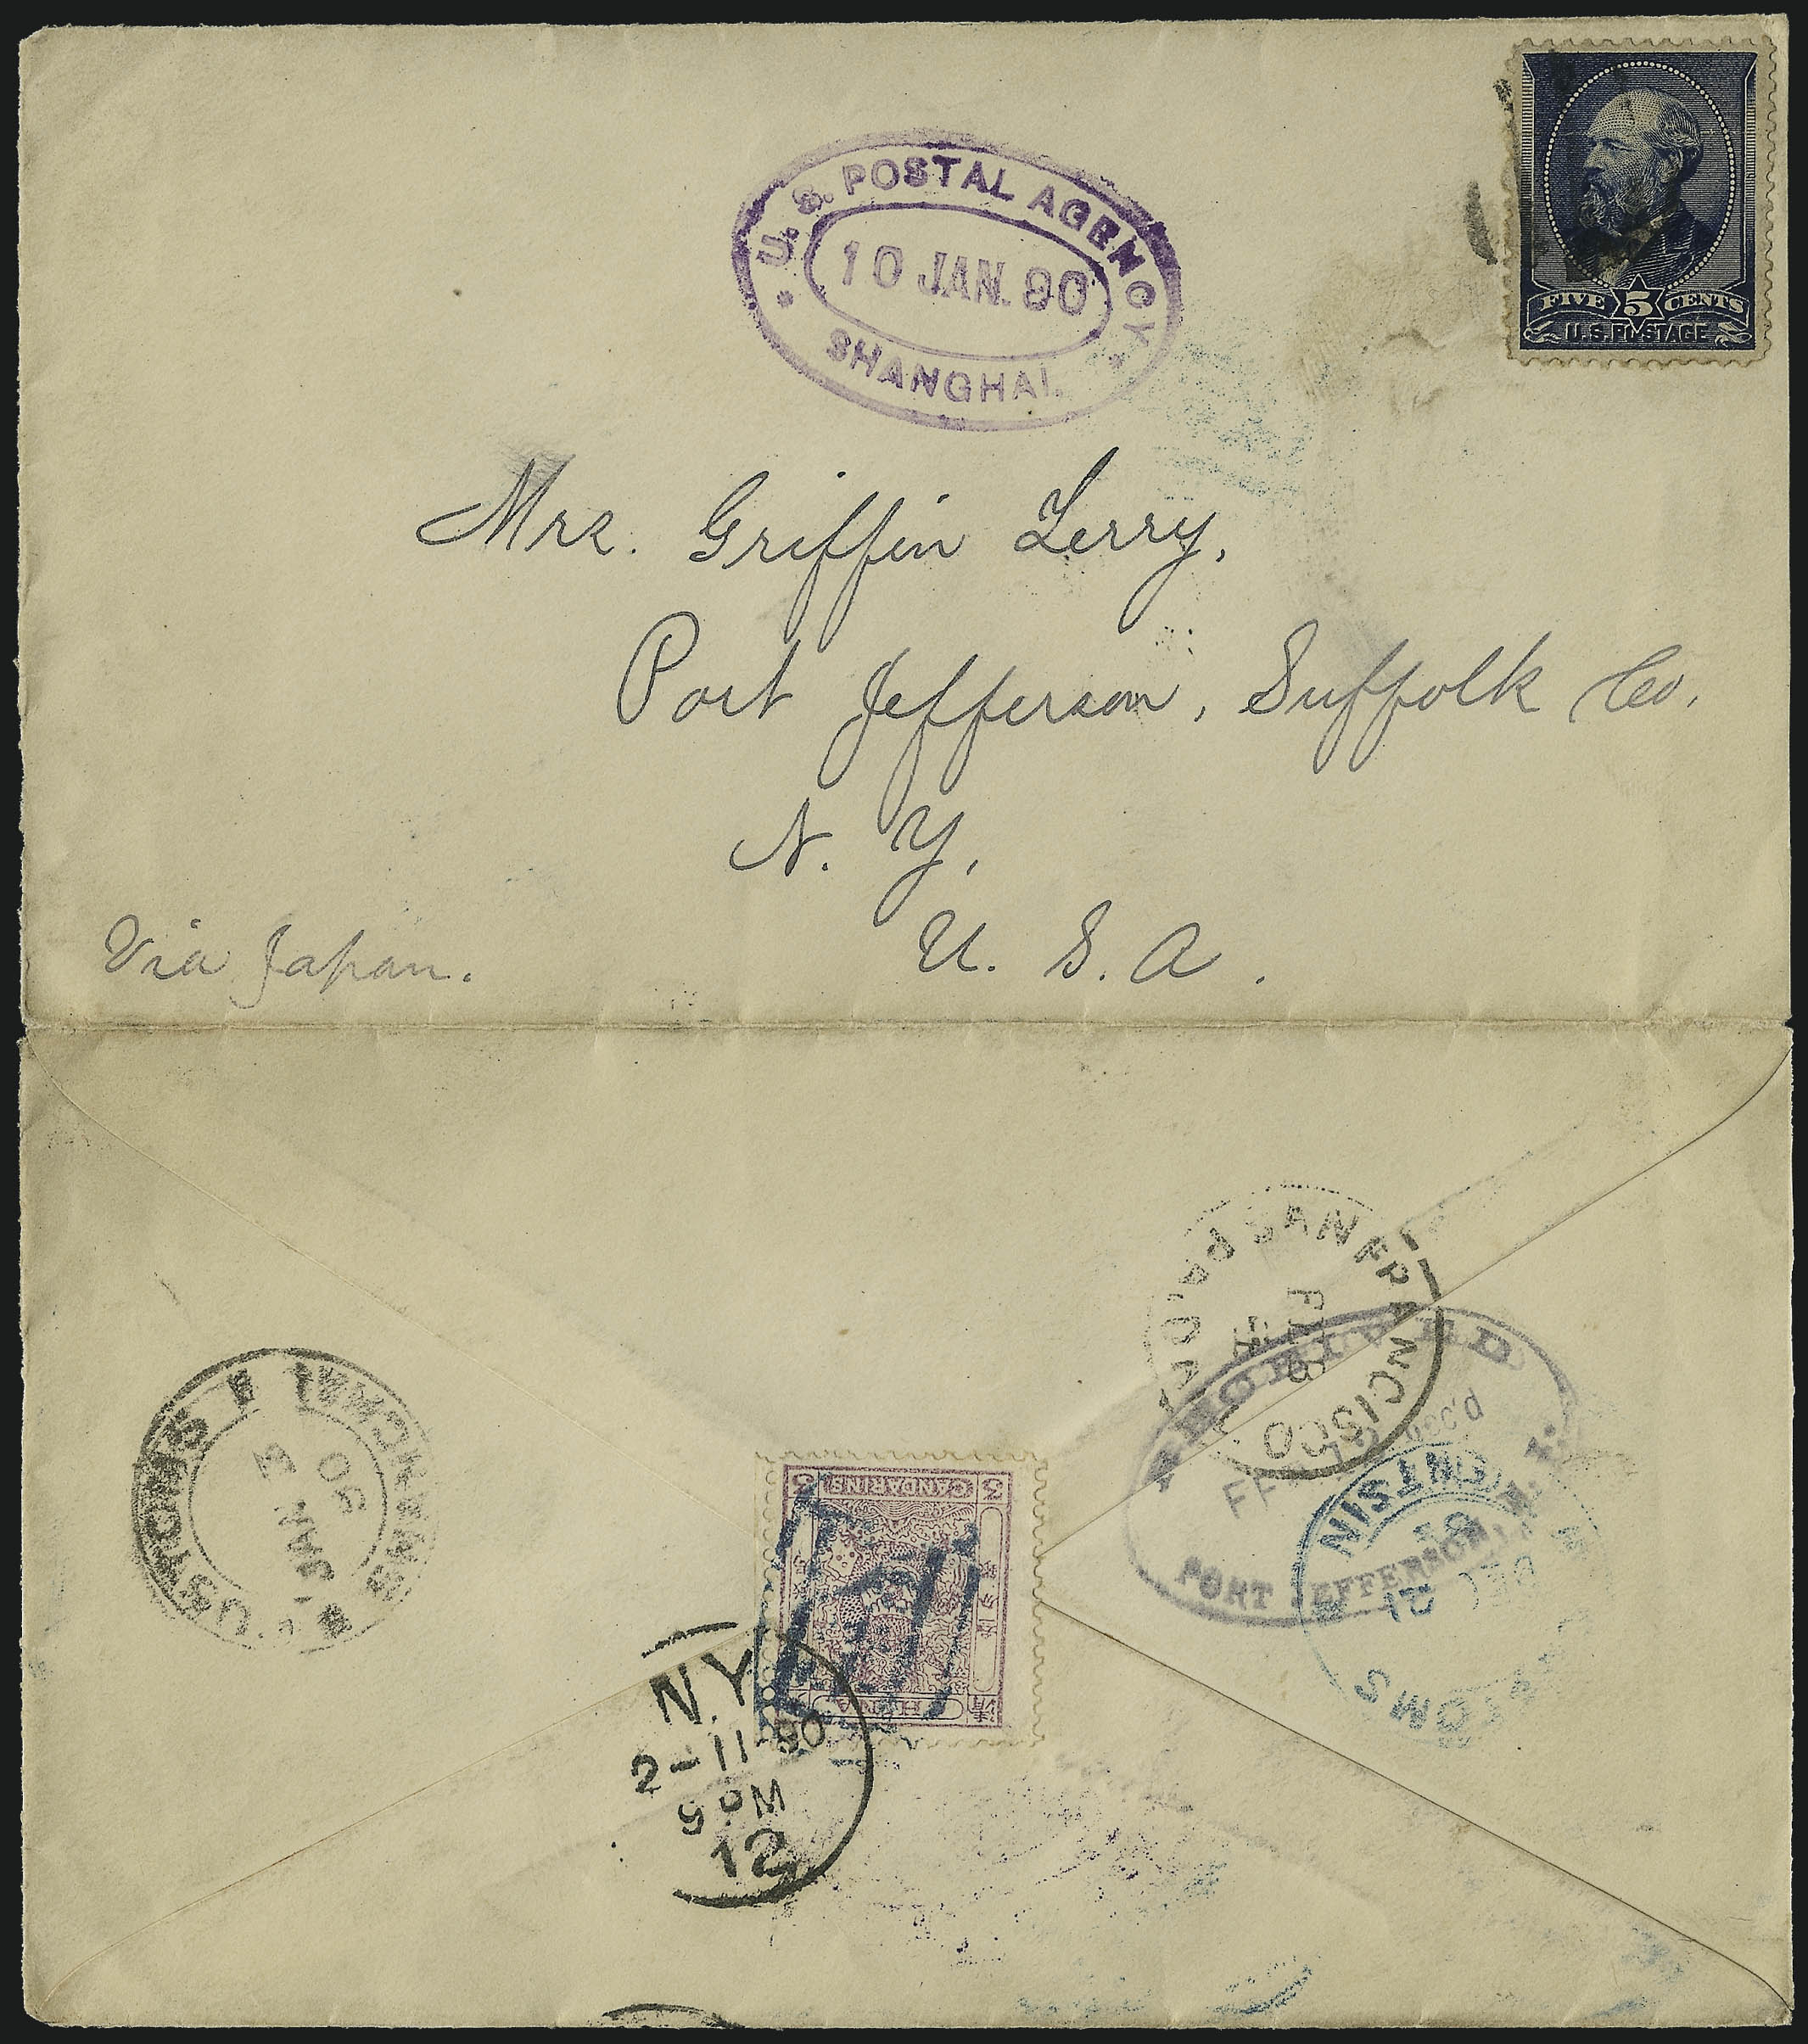 U.S. POSTAL AGENCY
10 JAN. 90
SHANGHAI.
FIVE 5 CENTS
U.S. POSTAGE
Mrs. Griffin Terry,
Port Jefferson, Suffolk Co.
N. Y.
U. S. A.
Via Japan.
SAN FRANCISCO
PAID
RECEIVED
FEB 12 Rec'd
PORT JEFFERSON, N. Y.
CUSTOMS
SHANGHAI
JAN
90
3 CANDARINS 3
CHINA
清
N.Y.
2-11-90
9 PM
12
TIENTSIN
DEC
CUSTOMS